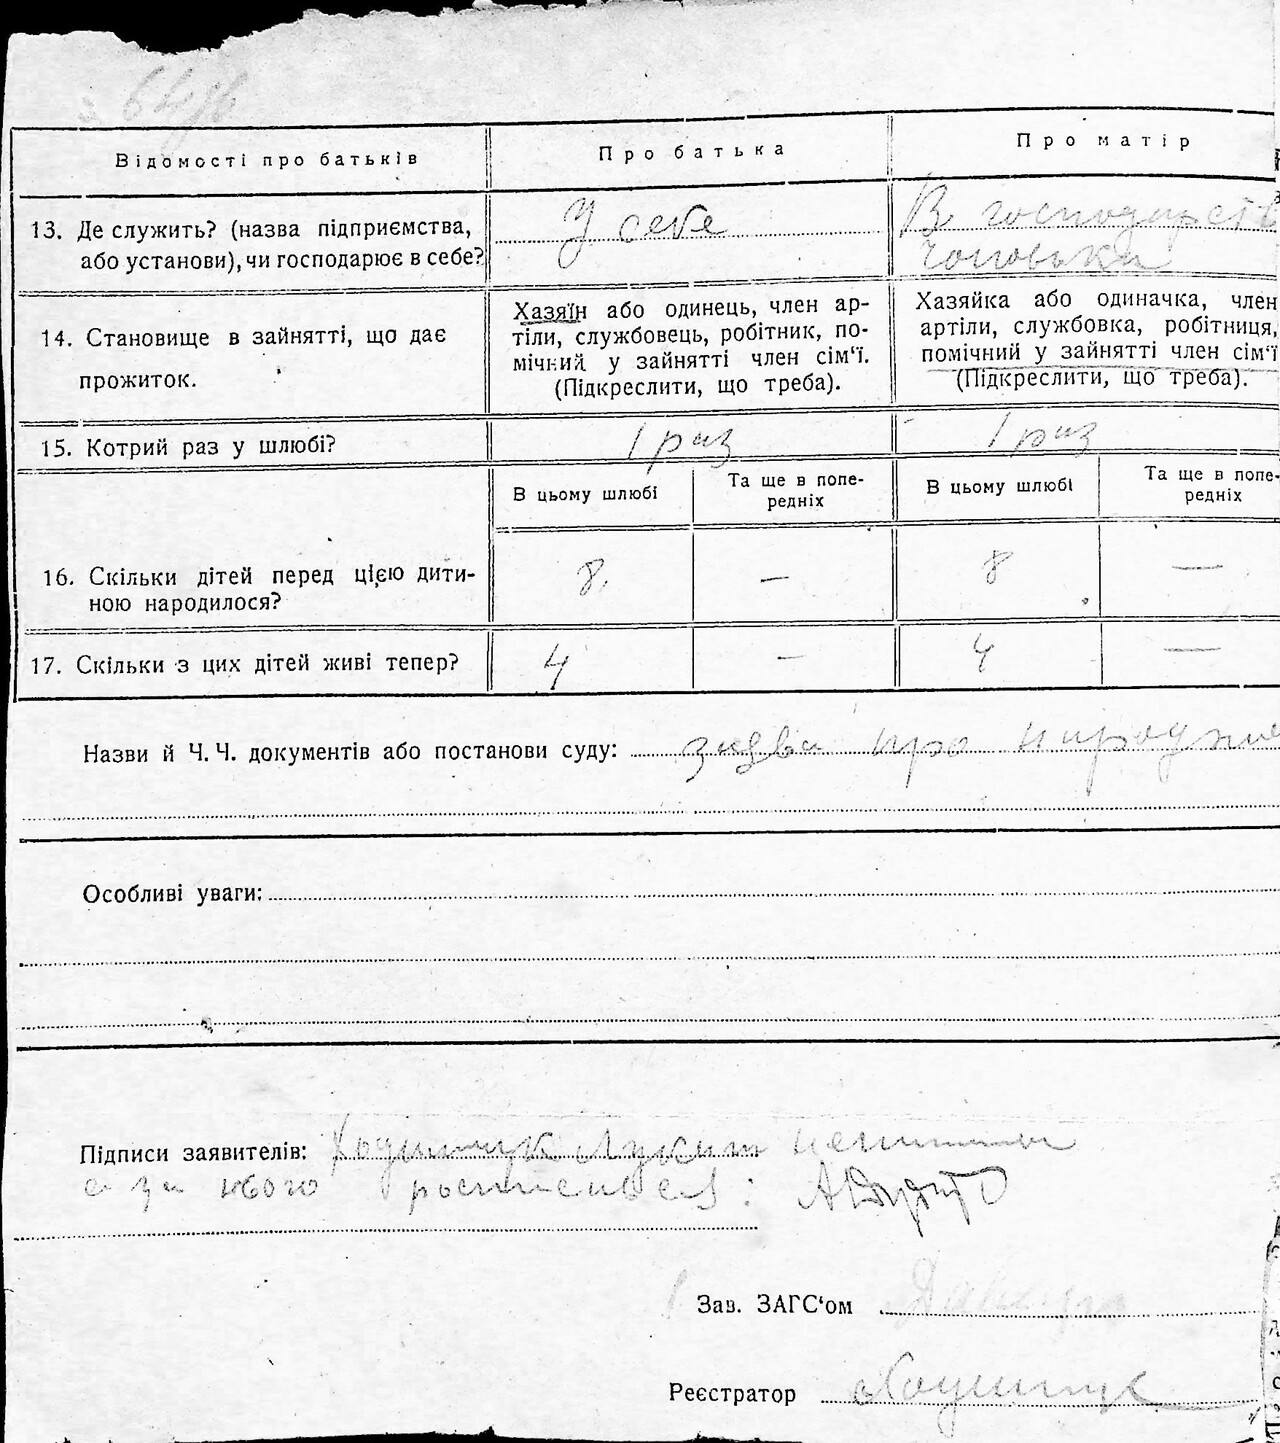 Відомості про батьків
Про батька
Про матір
13. Де служить? (назва підприємства,
або установи), чи господарює в себе?
У себе
В господарстві
чоловіка
14. Становище в зайнятті, що дає
прожиток.
Хазяїн або одинець, член ар-
тіли, службовець, робітник, по-
мічний у зайнятті член сім‘ї.
(Підкреслити, що треба).
Хазяйка або одиначка, член
артіли, службовка, робітниця,
помічний у зайнятті член сім‘ї
(Підкреслити, що треба).
15. Котрий раз у шлюбі?
1 раз
1 раз
В цьому шлюбі
Та ще в попе-
редніх
В цьому шлюбі
Та ще в попе-
редніх
16. Скільки дітей перед цією дити-
ною народилося?
8
—
8
—
17. Скільки з цих дітей живі тепер?
4
—
4
—
Назви й Ч. Ч. документів або постанови суду: заява про народже
Особливі уваги:
Підписи заявителів:
а за нього
Зав. ЗАГС‘ом
Реєстратор